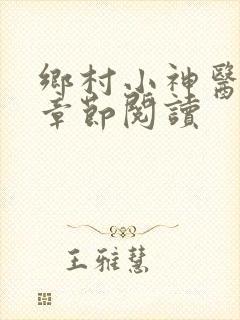 鄉村小神醫
章節閱讀
王雅慧